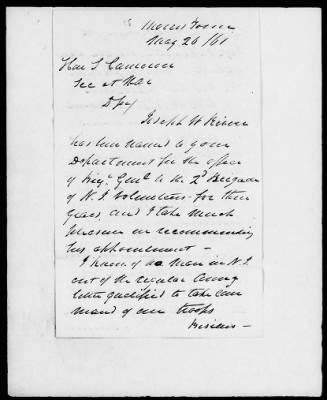 Morris Town
May 26/61
Hon S Cameron
Sec at War
D Sir
Joseph W Revere
has been named to your
Department for the office
of Brigr Genl to the 2d Brigade
of N. J. Volunteers for three
years, and I take much
pleasure in recommending
his appointment -
I know of no man in N. J.
out of the regular Army
better qualified to take com
mand of our troops
Besides -